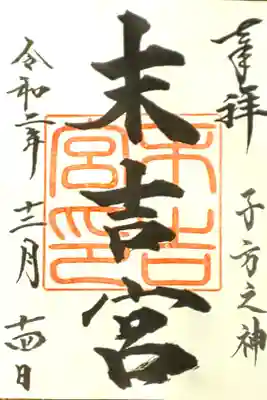 奉拝
子方之神
末吉宮
末吉宮印
令和二年
十二月
十四日